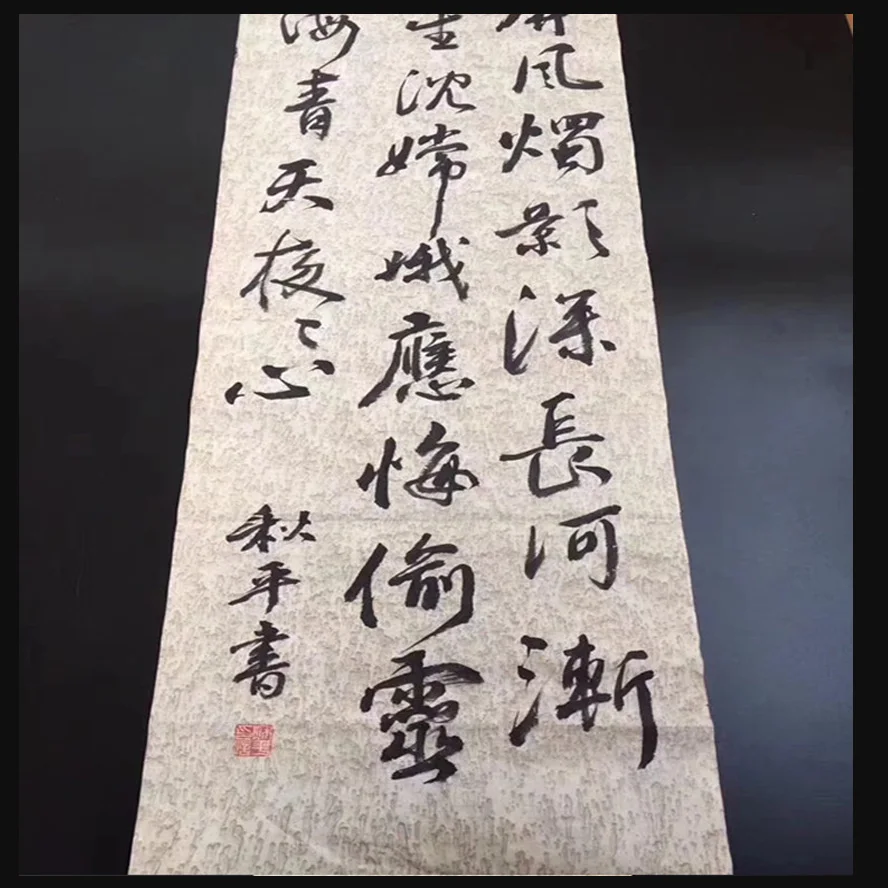 屏風燭影深長河漸
星沈嫦娥應悔偷靈
海青天夜〻心
秋平書